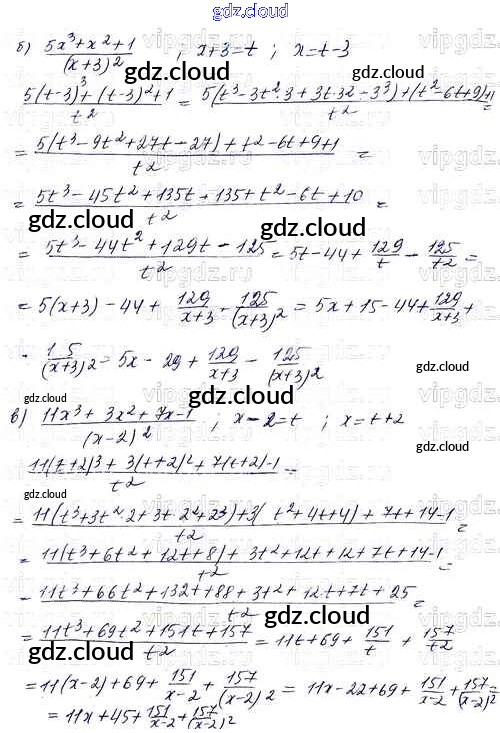 gdz.cloud
б) (5x³+x²+1)/(x+3)² ; x+3=t ; x=t-3
gdz.cloud gdz.cloud
(5(t-3)³+(t-3)²+1)/t² = (5(t³-3t²·3+3t·3²-3³)+(t²-6t+9)+1)/t² =
= (5(t³-9t²+27t-27)+t²-6t+9+1)/t² =
= (5t³-45t²+135t+135+t²-6t+10)/t² =
gdz.cloud gdz.cloud
= (5t³-44t²+129t-125)/t² = 5t-44+129/t-125/t² =
= 5(x+3)-44+129/(x+3)-125/(x+3)² = 5x+15-44+129/(x+3)+
- 15/(x+3)² = 5x-29+129/(x+3)-125/(x+3)²
gdz.cloud gdz.cloud
в) (11x³+3x²+7x-1)/(x-2)² ; x-2=t ; x=t+2
gdz.cloud
(11(t+2)³+3(t+2)²+7(t+2)-1)/t² =
gdz.cloud
= (11(t³+3t²·2+3t·2²+2³)+3(t²+4t+4)+7t+14-1)/t² =
gdz.cloud
= (11(t³+6t²+12t+8)+3t²+12t+12+7t+14-1)/t² =
- (11t³+66t²+132t+88+3t²+12t+7t+25)/t² =
gdz.cloud
= (11t³+69t²+151t+157)/t² = 11t+69+151/t+157/t²
gdz.cloud gdz.cloud
= 11(x-2)+69+151/(x-2)+157/(x-2)² = 11x-22+69+151/(x-2)+157/(x-2)² =
= 11x+45+151/(x-2)+157/(x-2)²